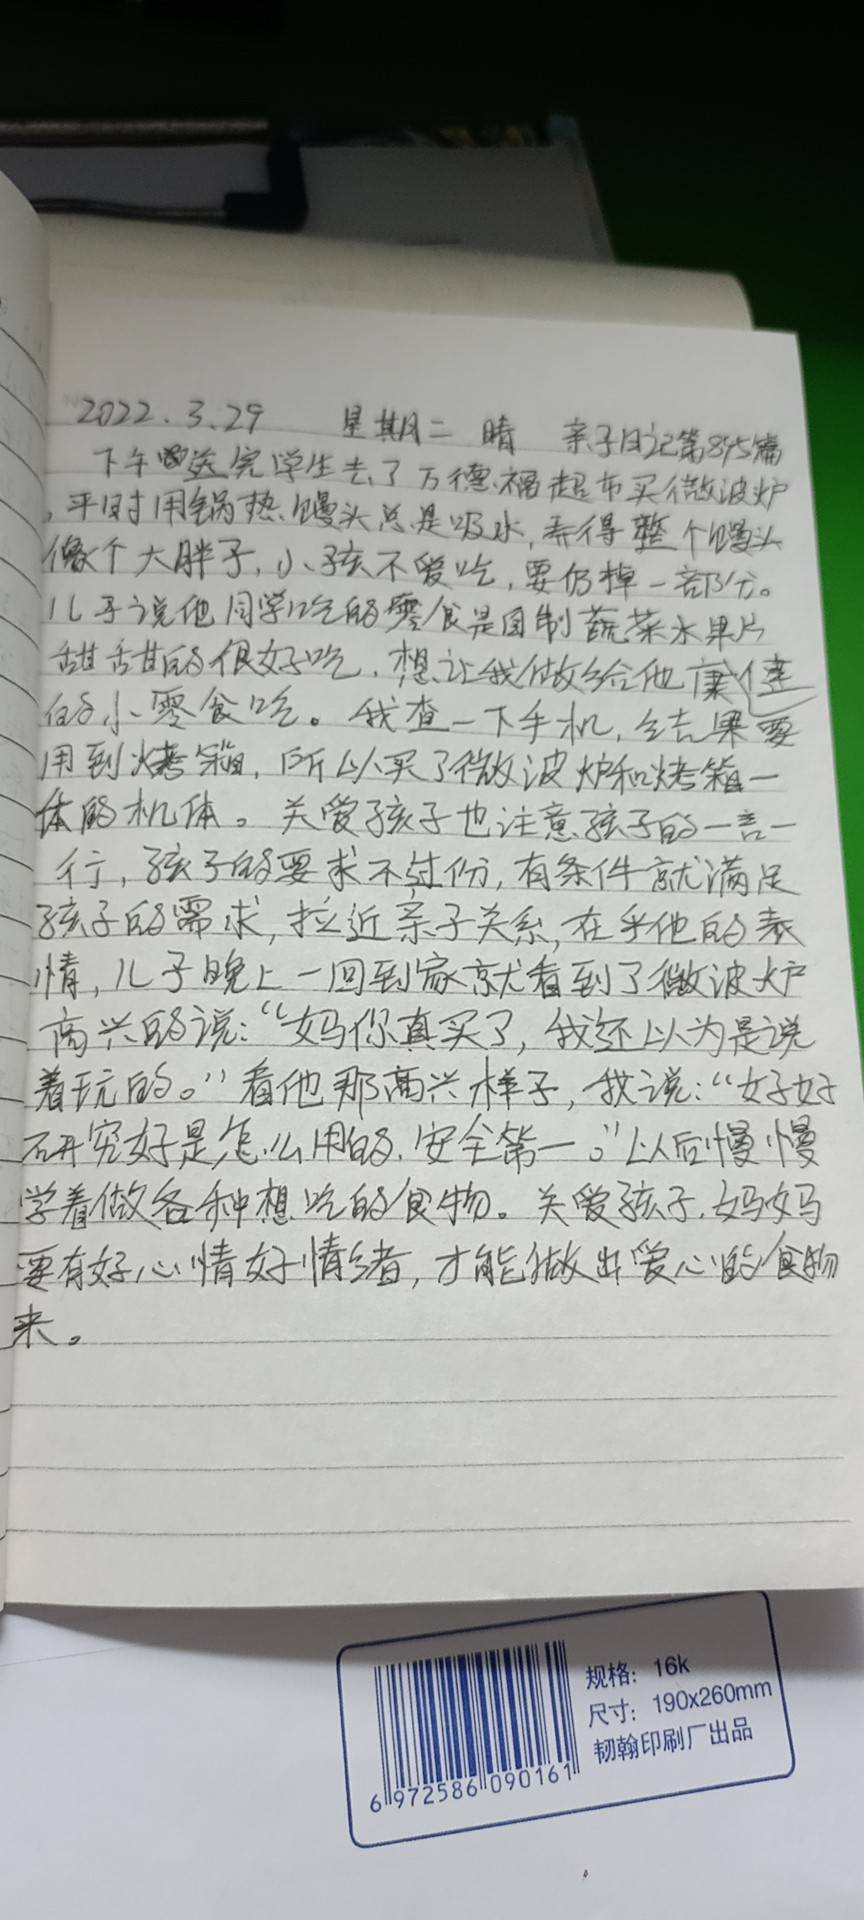 2022.3.29 星期二 晴 亲子日记第895篇
下午送完学生去了万德福超市买微波炉
,平时用锅热馒头总是吸水,弄得整个馒头
像个大胖子,小孩不爱吃,要扔掉一部分。
儿子说他同学吃的零食是自制蔬菜水果片
甜甜的很好吃,想让我做给他康健
的小零食吃。我查一下手机,结果要
用到烤箱,所以买了微波炉和烤箱一
体的机体。关爱孩子也注意孩子的一言一
行,孩子的要求不过份,有条件就满足
孩子的需求,拉近亲子关系,在乎他的表
情,儿子晚上一回到家就看到了微波炉
高兴的说:“妈你真买了,我还以为是说
着玩的。”看他那高兴样子,我说:“好好
研究好是怎么用的,安全第一。”以后慢慢
学着做各种想吃的食物。关爱孩子,妈妈
要有好心情好情绪,才能做出爱心的食物
来。
规格: 16k
尺寸: 190x260mm
韧翰印刷厂出品
6 972586 090161